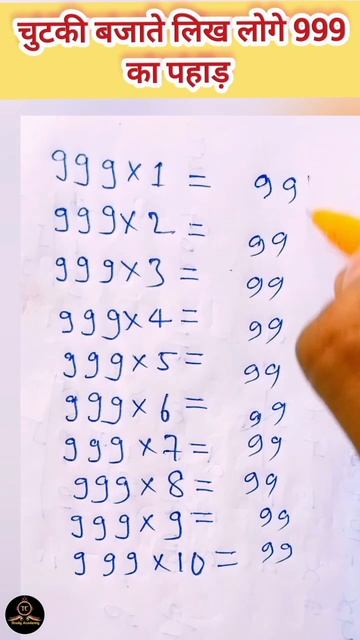 चुटकी बजाते लिख लोगे 999
का पहाड़
999 × 1 = 99
999 × 2 = 99
999 × 3 = 99
999 × 4 = 99
999 × 5 = 99
999 × 6 = 99
999 × 7 = 99
999 × 8 = 99
999 × 9 = 99
999 × 10 = 99